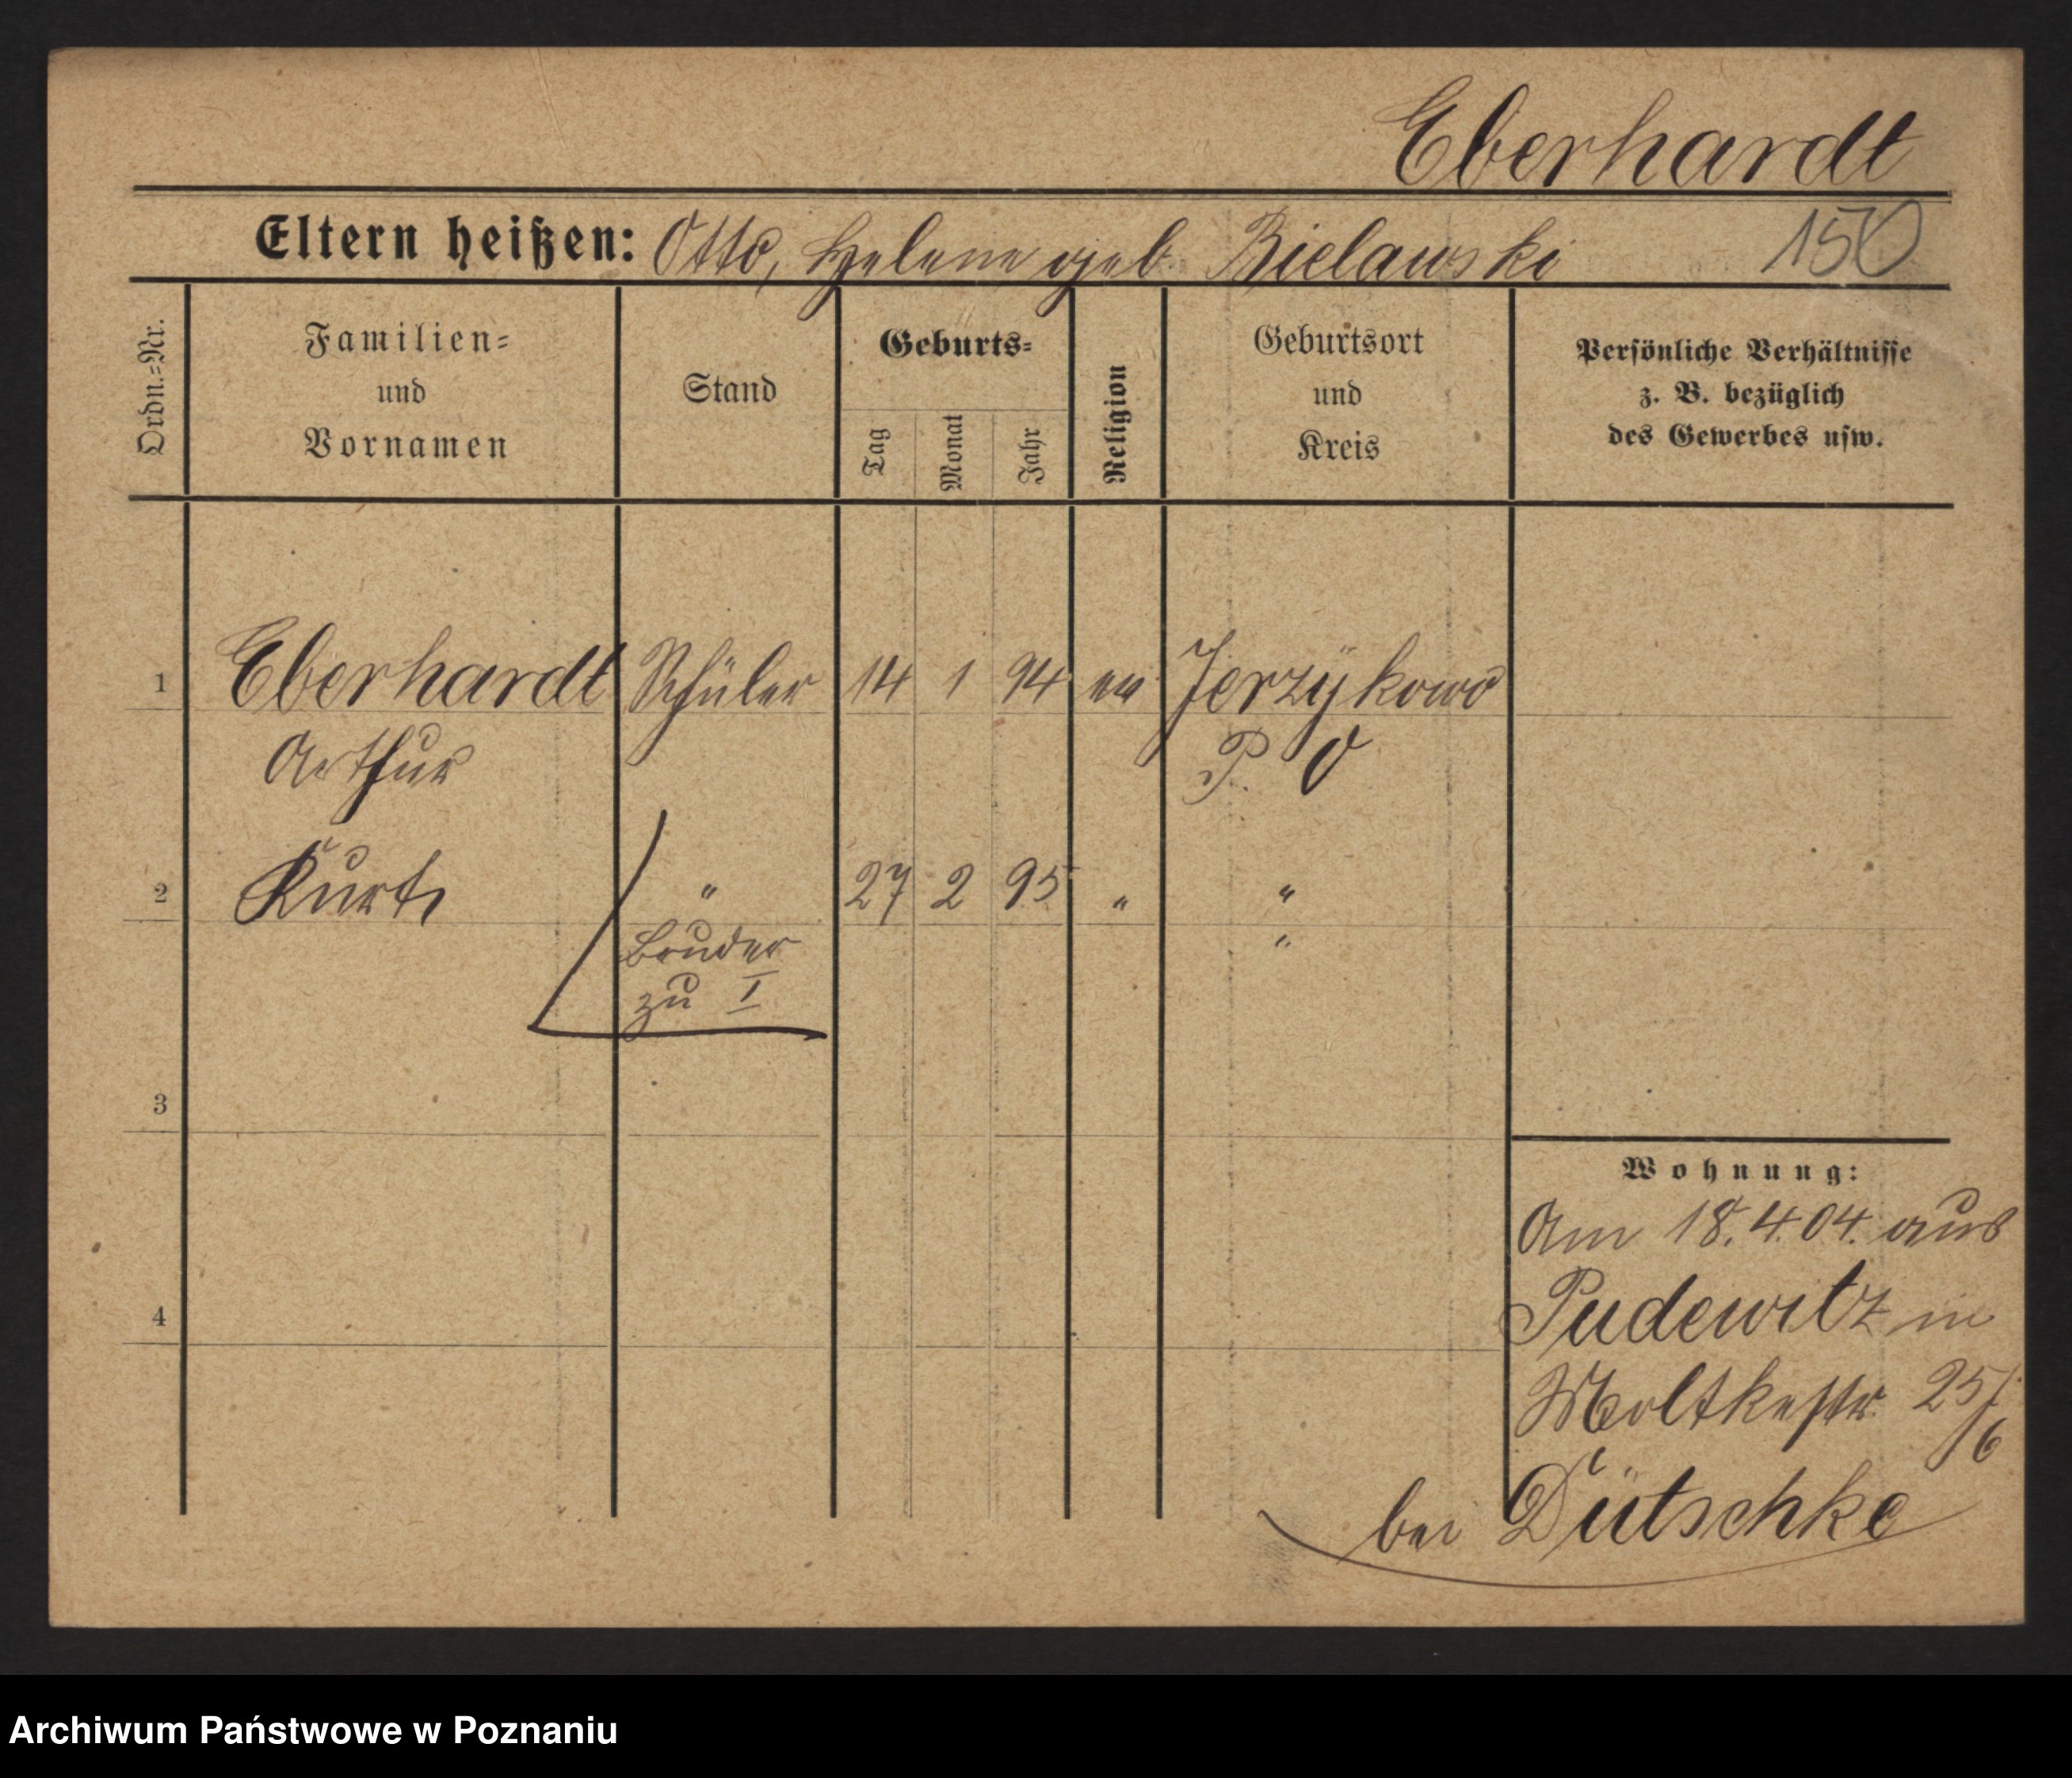 Eberhardt
Eltern heißen: Otto, Helene geb. Bielawski 150
Ordn.-Nr.
Familien-
und
Vornamen
Stand
Geburts-
Tag
Monat
Jahr
Religion
Geburtsort
und
Kreis
Persönliche Verhältnisse
z. B. bezüglich
des Gewerbes usw.
1 Eberhardt Schüler 14 1 94 ev Jerzykowo
Arthur P. O
2 Kurt " 27 2 95 " "
Bruder "
zu I
3
4
Wohnung:
Am 18.4.04. aus
Pudewitz in
Moltkestr 25/6
bei Dütschke
Archiwum Państwowe w Poznaniu